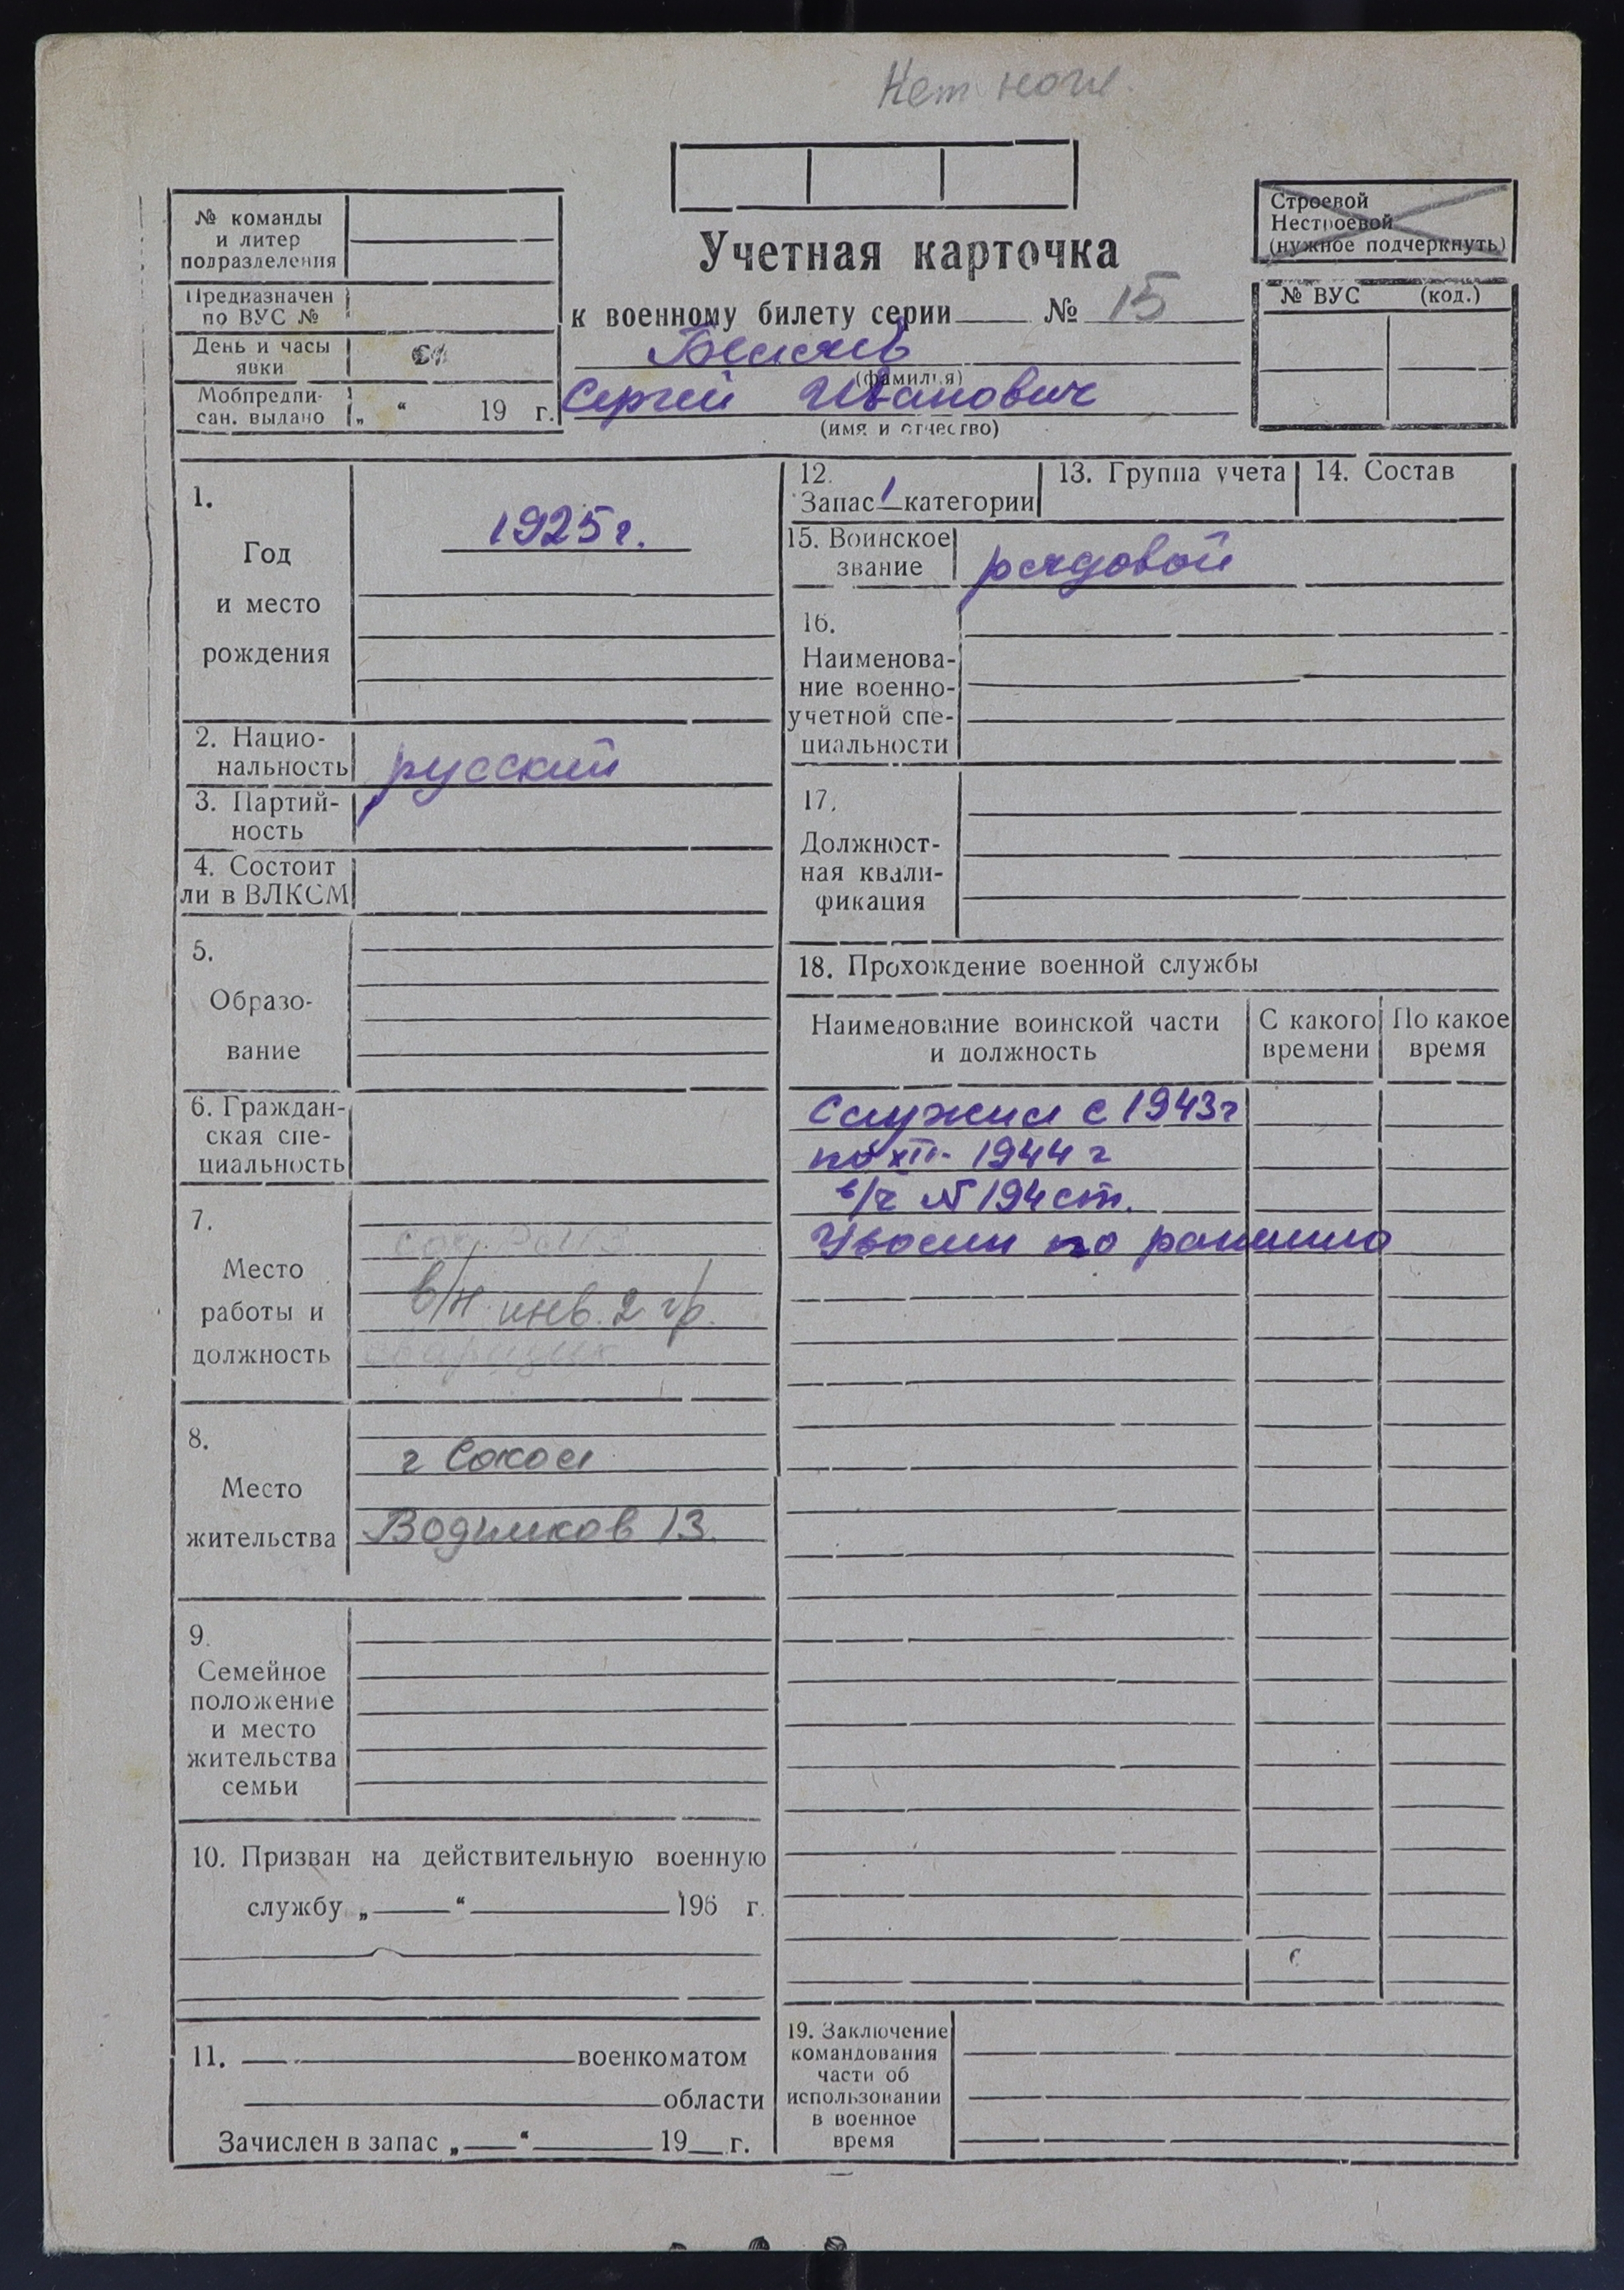 Нет ноги.
№ команды
и литер
подразделения
Предназначен
по ВУС №
День и часы
явки
Мобпредпи-
сан. выдано „ “ 19 г.
Учетная карточка
к военному билету серии № 15
Беляев
(фамилия)
Сергей Иванович
(имя и отчество)
Строевой
Нестроевой
(нужное подчеркнуть)
№ ВУС (код.)
1.
Год
и место
рождения
1925 г.
2. Нацио-
нальность русский
3. Партий-
ность
4. Состоит
ли в ВЛКСМ
5.
Образо-
вание
6. Граждан-
ская спе-
циальность
7.
Место
работы и
должность
в/н инв. 2 гр.
сварщик
8.
Место
жительства
г Сокол
Водников 13.
9.
Семейное
положение
и место
жительства
семьи
10. Призван на действительную военную
службу „ “ 196 г.
11. военкоматом
области
Зачислен в запас „ “ 19 г.
12.
Запас 1 категории
13. Группа учета
14. Состав
15. Воинское
звание рядовой
16.
Наименова-
ние военно-
учетной спе-
циальности
17.
Должност-
ная квали-
фикация
18. Прохождение военной службы
Наименование воинской части
и должность
С какого
времени
По какое
время
Служил с 1943г
по XII- 1944 г
в/ч № 194 сп.
Уволен по ранению
19. Заключение
командования
части об
использовании
в военное
время